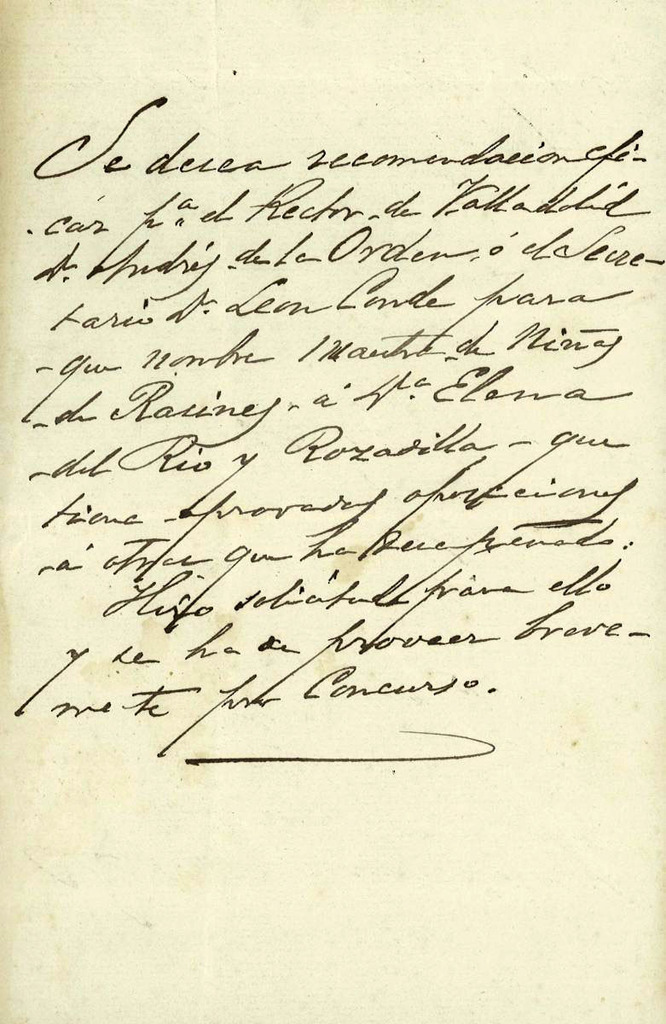 Se desea recomendacion efi-
caz p.ª el Rector de Valladolid
D. Andrés de la Orden, ó el Secre-
tario D. Leon Conde para
que nombre Maestra de Niñas
de Rasines á D.ª Elena
del Rio y Rozadilla - que
tiene aprovadas oposiciones
á otras que ha desempeñado:
Hizo solicitud para ello
y se ha de proveer breve-
mete por Concurso.